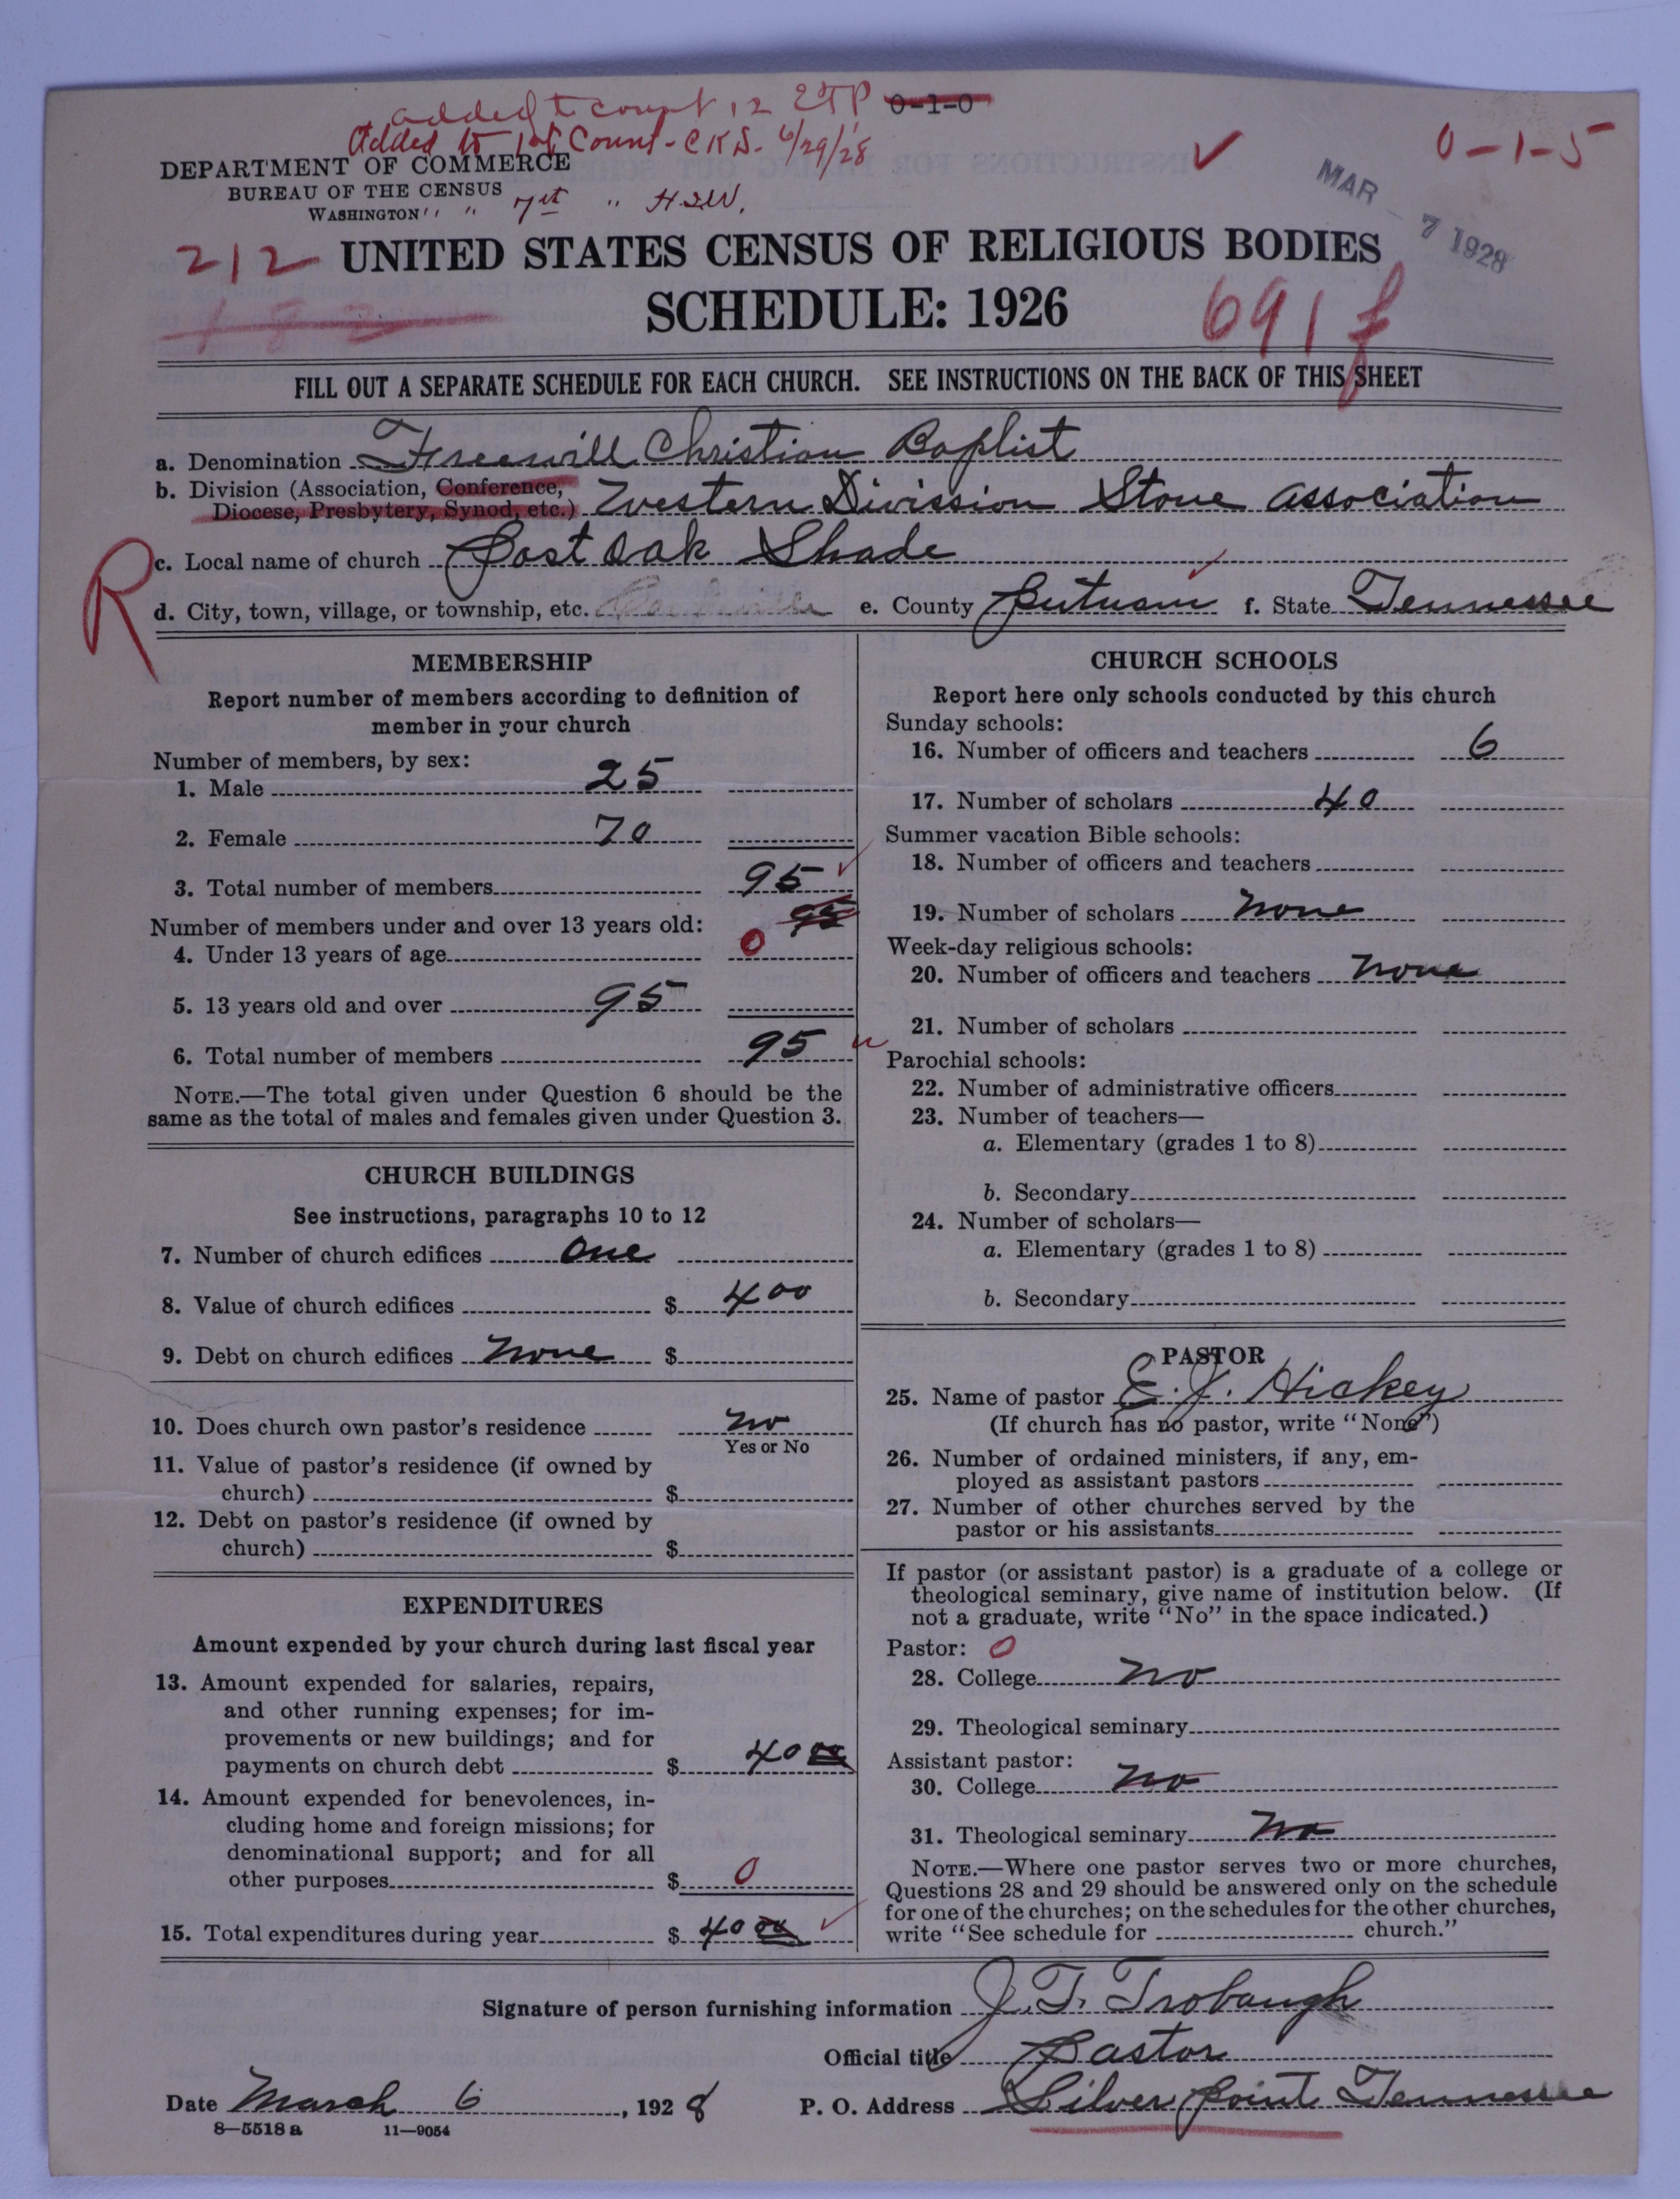 added to count 12 ETP 0-1-0
Added to 1st Count - CKS. 6/29/28
0-1-5
DEPARTMENT OF COMMERCE
BUREAU OF THE CENSUS
WASHINGTON " " 7th " HSW.
MAR - 7 1928
212 UNITED STATES CENSUS OF RELIGIOUS BODIES
SCHEDULE: 1926
691 f
FILL OUT A SEPARATE SCHEDULE FOR EACH CHURCH. SEE INSTRUCTIONS ON THE BACK OF THIS SHEET
a. Denomination Freewill Christian Baptist
b. Division (Association, Conference,
Diocese, Presbytery, Synod, etc.) Western Division Stone Association
R
c. Local name of church Post Oak Shade
d. City, town, village, or township, etc. e. County Putnam f. State Tennessee
MEMBERSHIP
Report number of members according to definition of
member in your church
Number of members, by sex:
1. Male 25
2. Female 70
3. Total number of members 95
Number of members under and over 13 years old: 95
4. Under 13 years of age 0
5. 13 years old and over 95
6. Total number of members 95
NOTE.—The total given under Question 6 should be the
same as the total of males and females given under Question 3.
CHURCH BUILDINGS
See instructions, paragraphs 10 to 12
7. Number of church edifices One
8. Value of church edifices $ 400
9. Debt on church edifices None $
10. Does church own pastor's residence No
Yes or No
11. Value of pastor's residence (if owned by
church) $
12. Debt on pastor's residence (if owned by
church) $
EXPENDITURES
Amount expended by your church during last fiscal year
13. Amount expended for salaries, repairs,
and other running expenses; for im-
provements or new buildings; and for
payments on church debt $ 40 00
14. Amount expended for benevolences, in-
cluding home and foreign missions; for
denominational support; and for all
other purposes $ 0
15. Total expenditures during year $ 40 00
CHURCH SCHOOLS
Report here only schools conducted by this church
Sunday schools:
16. Number of officers and teachers 6
17. Number of scholars 40
Summer vacation Bible schools:
18. Number of officers and teachers
19. Number of scholars None
Week-day religious schools:
20. Number of officers and teachers None
21. Number of scholars
Parochial schools:
22. Number of administrative officers
23. Number of teachers—
a. Elementary (grades 1 to 8)
b. Secondary
24. Number of scholars—
a. Elementary (grades 1 to 8)
b. Secondary
PASTOR
25. Name of pastor E. J. Hickey
(If church has no pastor, write "None")
26. Number of ordained ministers, if any, em-
ployed as assistant pastors
27. Number of other churches served by the
pastor or his assistants
If pastor (or assistant pastor) is a graduate of a college or
theological seminary, give name of institution below. (If
not a graduate, write "No" in the space indicated.)
Pastor: 0
28. College No
29. Theological seminary
Assistant pastor:
30. College No
31. Theological seminary No
NOTE.—Where one pastor serves two or more churches,
Questions 28 and 29 should be answered only on the schedule
for one of the churches; on the schedules for the other churches,
write "See schedule for church."
Signature of person furnishing information J. T. Trobaugh
Official title Pastor
Date March 6, 1928 P. O. Address Silver Point Tennessee
8—5518 a 11—9054